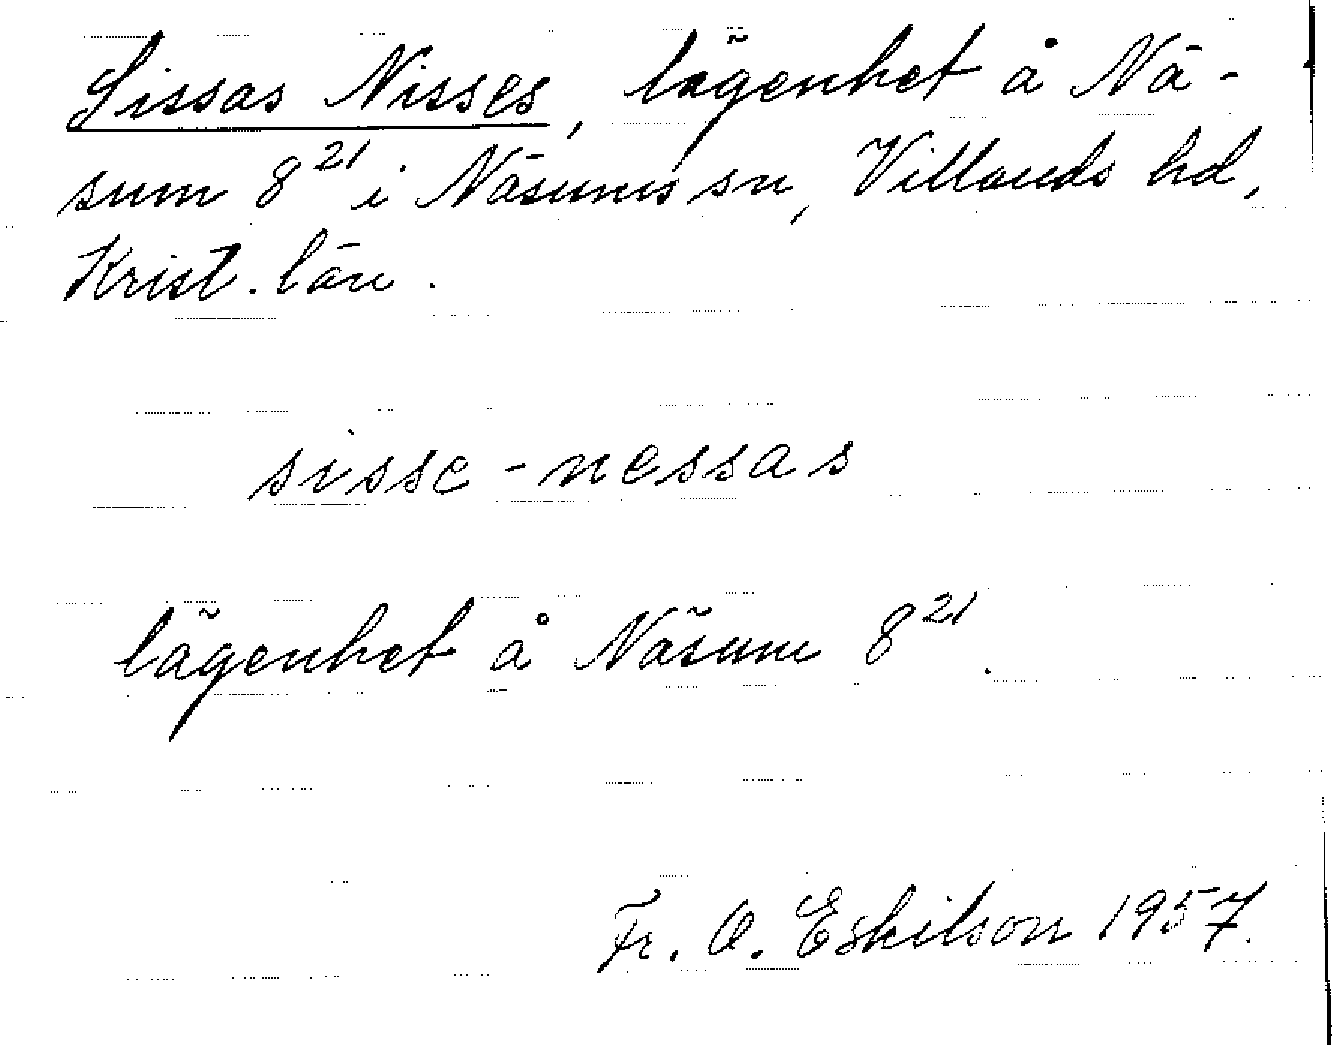 Sissas Nisses, lägenhet å Nä-
sum 8²¹ i Näsums sn, Villands hd,
Krist. län.
sisse-nessas
lägenhet å Näsum 8²¹.
Fr. O. Eskilson 1957.